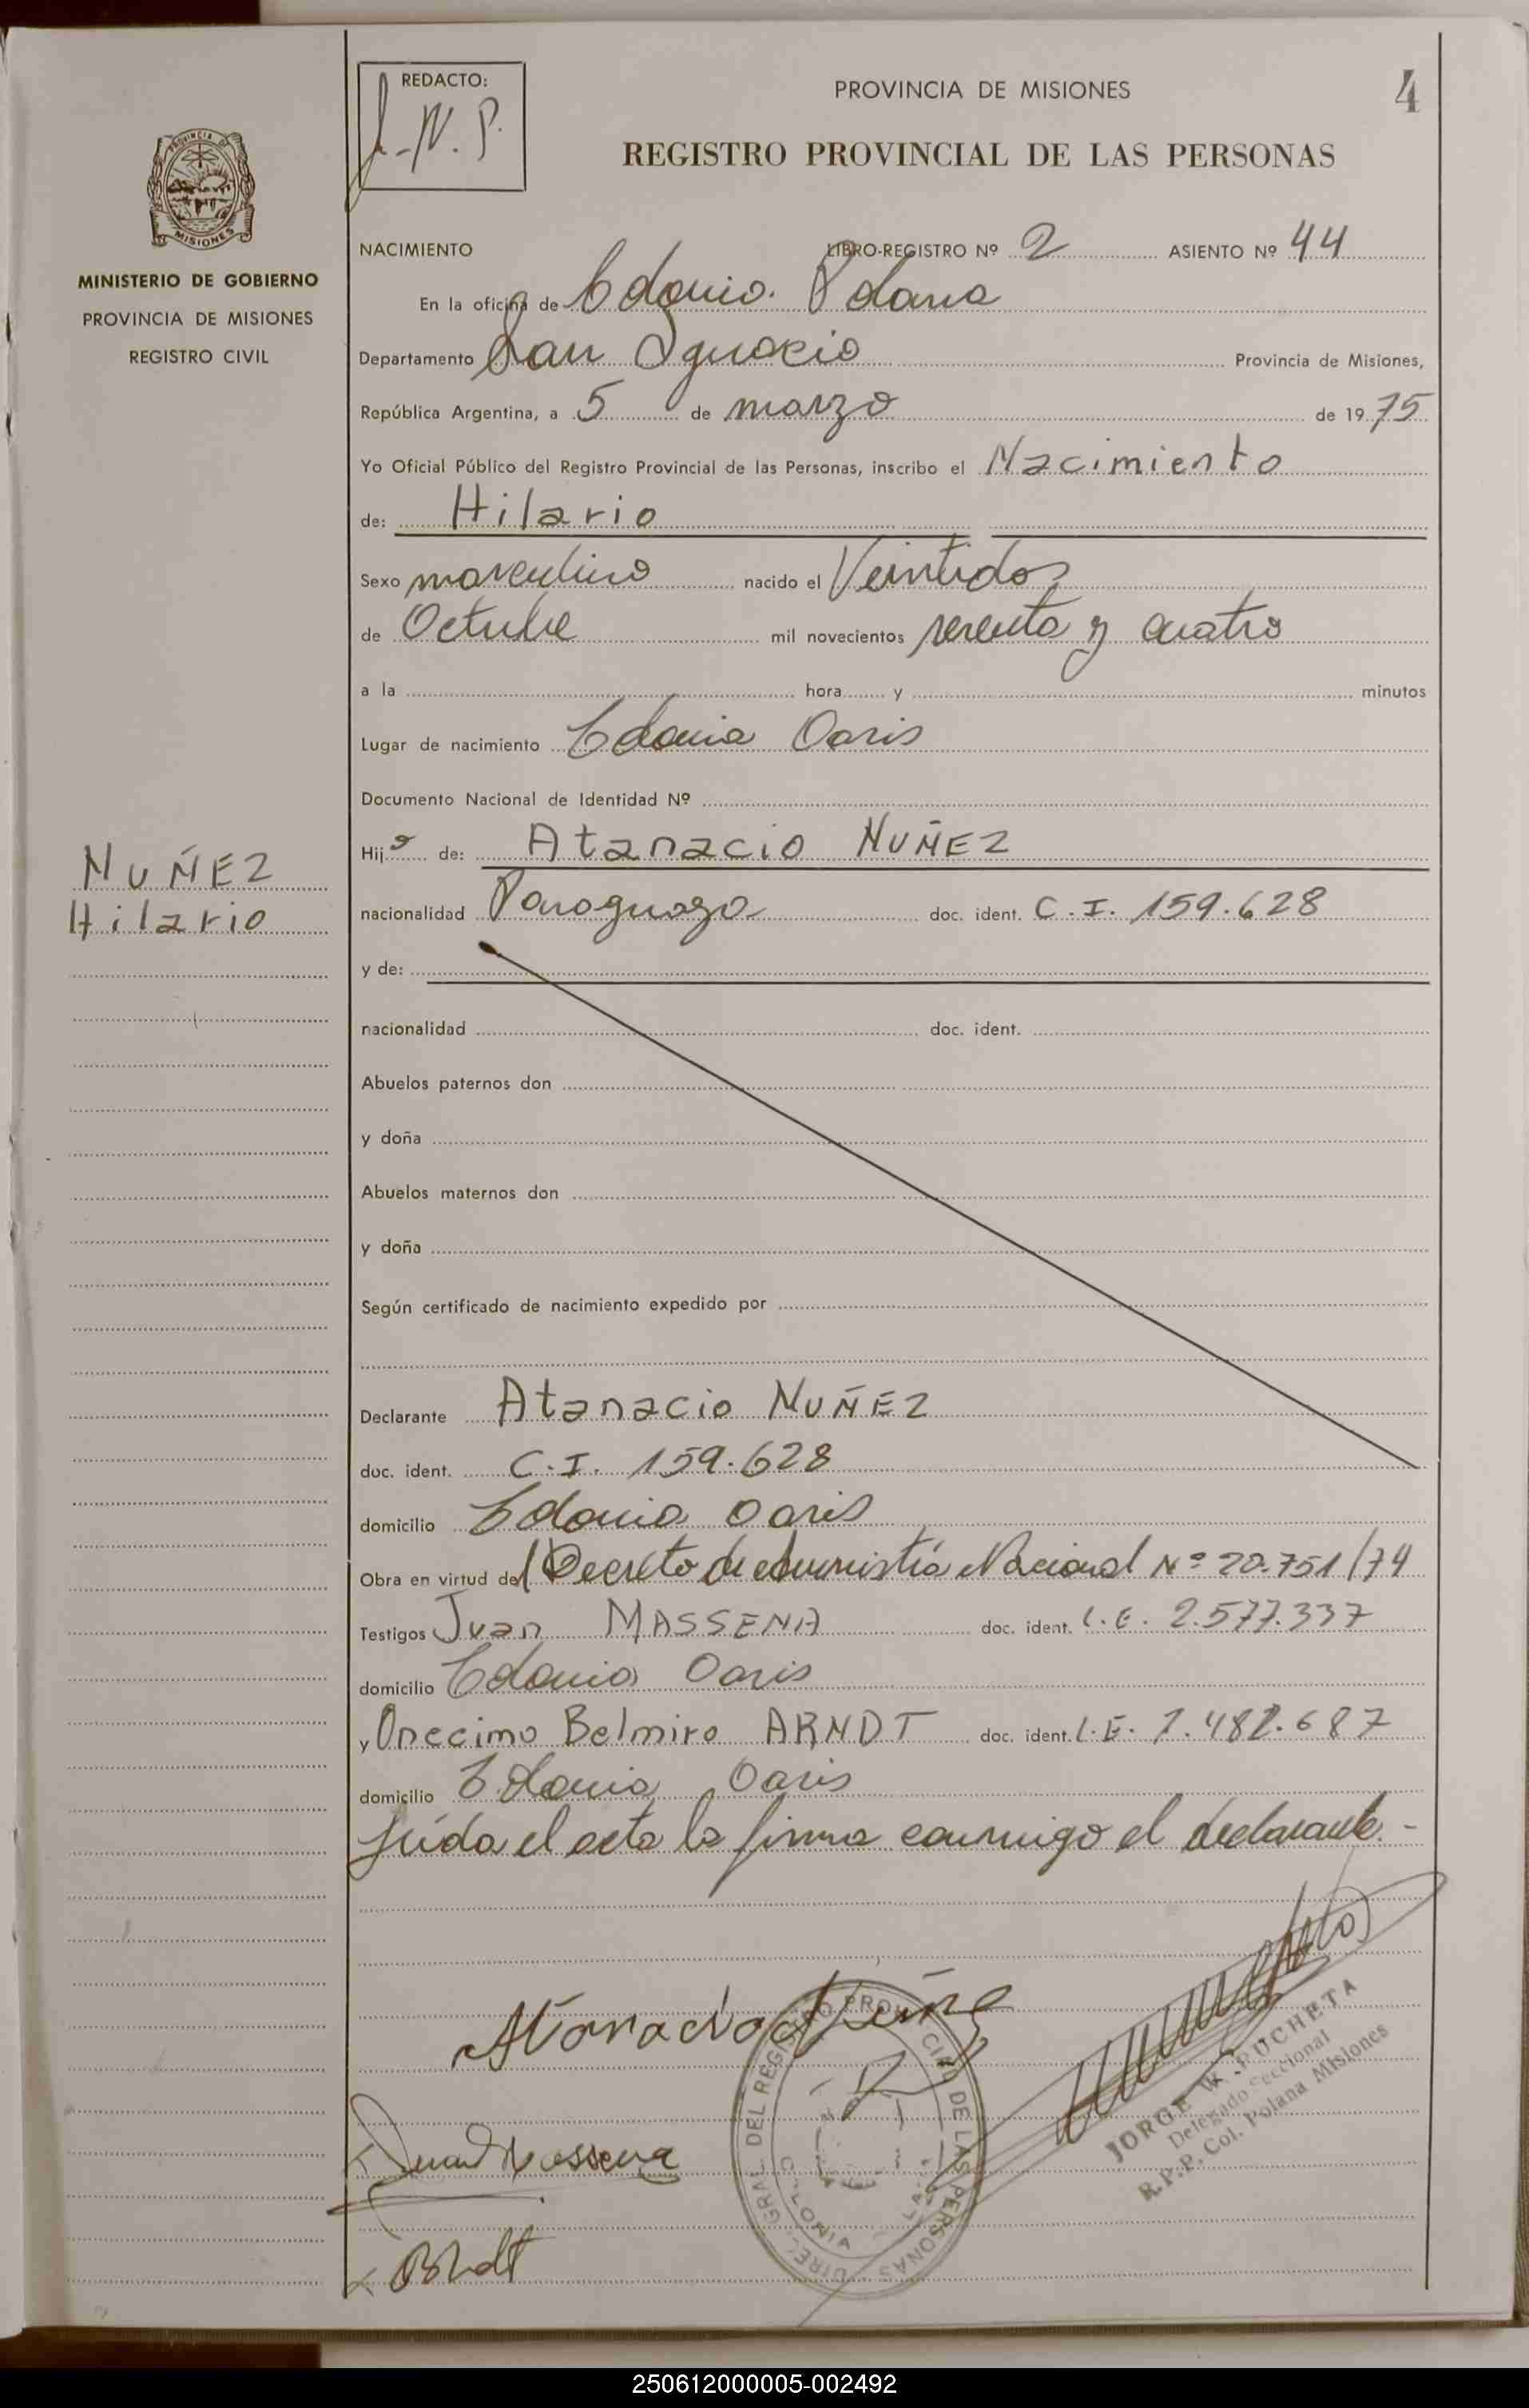 REDACTO:
J-N.P.
PROVINCIA DE MISIONES
4
REGISTRO PROVINCIAL DE LAS PERSONAS
PROVINCIA DE
MISIONES
MINISTERIO DE GOBIERNO
PROVINCIA DE MISIONES
REGISTRO CIVIL
NUÑEZ
Hilario
NACIMIENTO LIBRO-REGISTRO Nº 2 ASIENTO Nº 44
En la oficina de Colonia Polana
Departamento San Ignacio Provincia de Misiones,
República Argentina, a 5 de marzo de 1975
Yo Oficial Público del Registro Provincial de las Personas, inscribo el Nacimiento
de: Hilario
Sexo masculino nacido el Veintidos
de Octubre mil novecientos sesenta y cuatro
a la hora y minutos
Lugar de nacimiento Colonia Oasis
Documento Nacional de Identidad Nº
Hijo de: Atanacio NUÑEZ
nacionalidad Paraguaya doc. ident. C.I. 159.628
y de:
nacionalidad doc. ident.
Abuelos paternos don
y doña
Abuelos maternos don
y doña
Según certificado de nacimiento expedido por
Declarante Atanacio NUÑEZ
doc. ident. C.I. 159.628
domicilio Colonia Oasis
Obra en virtud del Decreto de Amnistía Nacional Nº 20.751/74
Testigos Juan MASSENA doc. ident. L.E. 2.577.337
domicilio Colonia Oasis
y Onecimo Belmiro ARNDT doc. ident. L.E. 7.482.687
domicilio Colonia Oasis
Leída el acta la firma conmigo el declarante.-
Atanacio Nuñez
Juan Massena
DIREC. GRAL. DEL REGISTRO PROVINCIAL DE LAS PERSONAS
COLONIA
JORGE W. PUCHETA
Delegado Seccional
R.P.P. Col. Polana Misiones
250612000005-002492